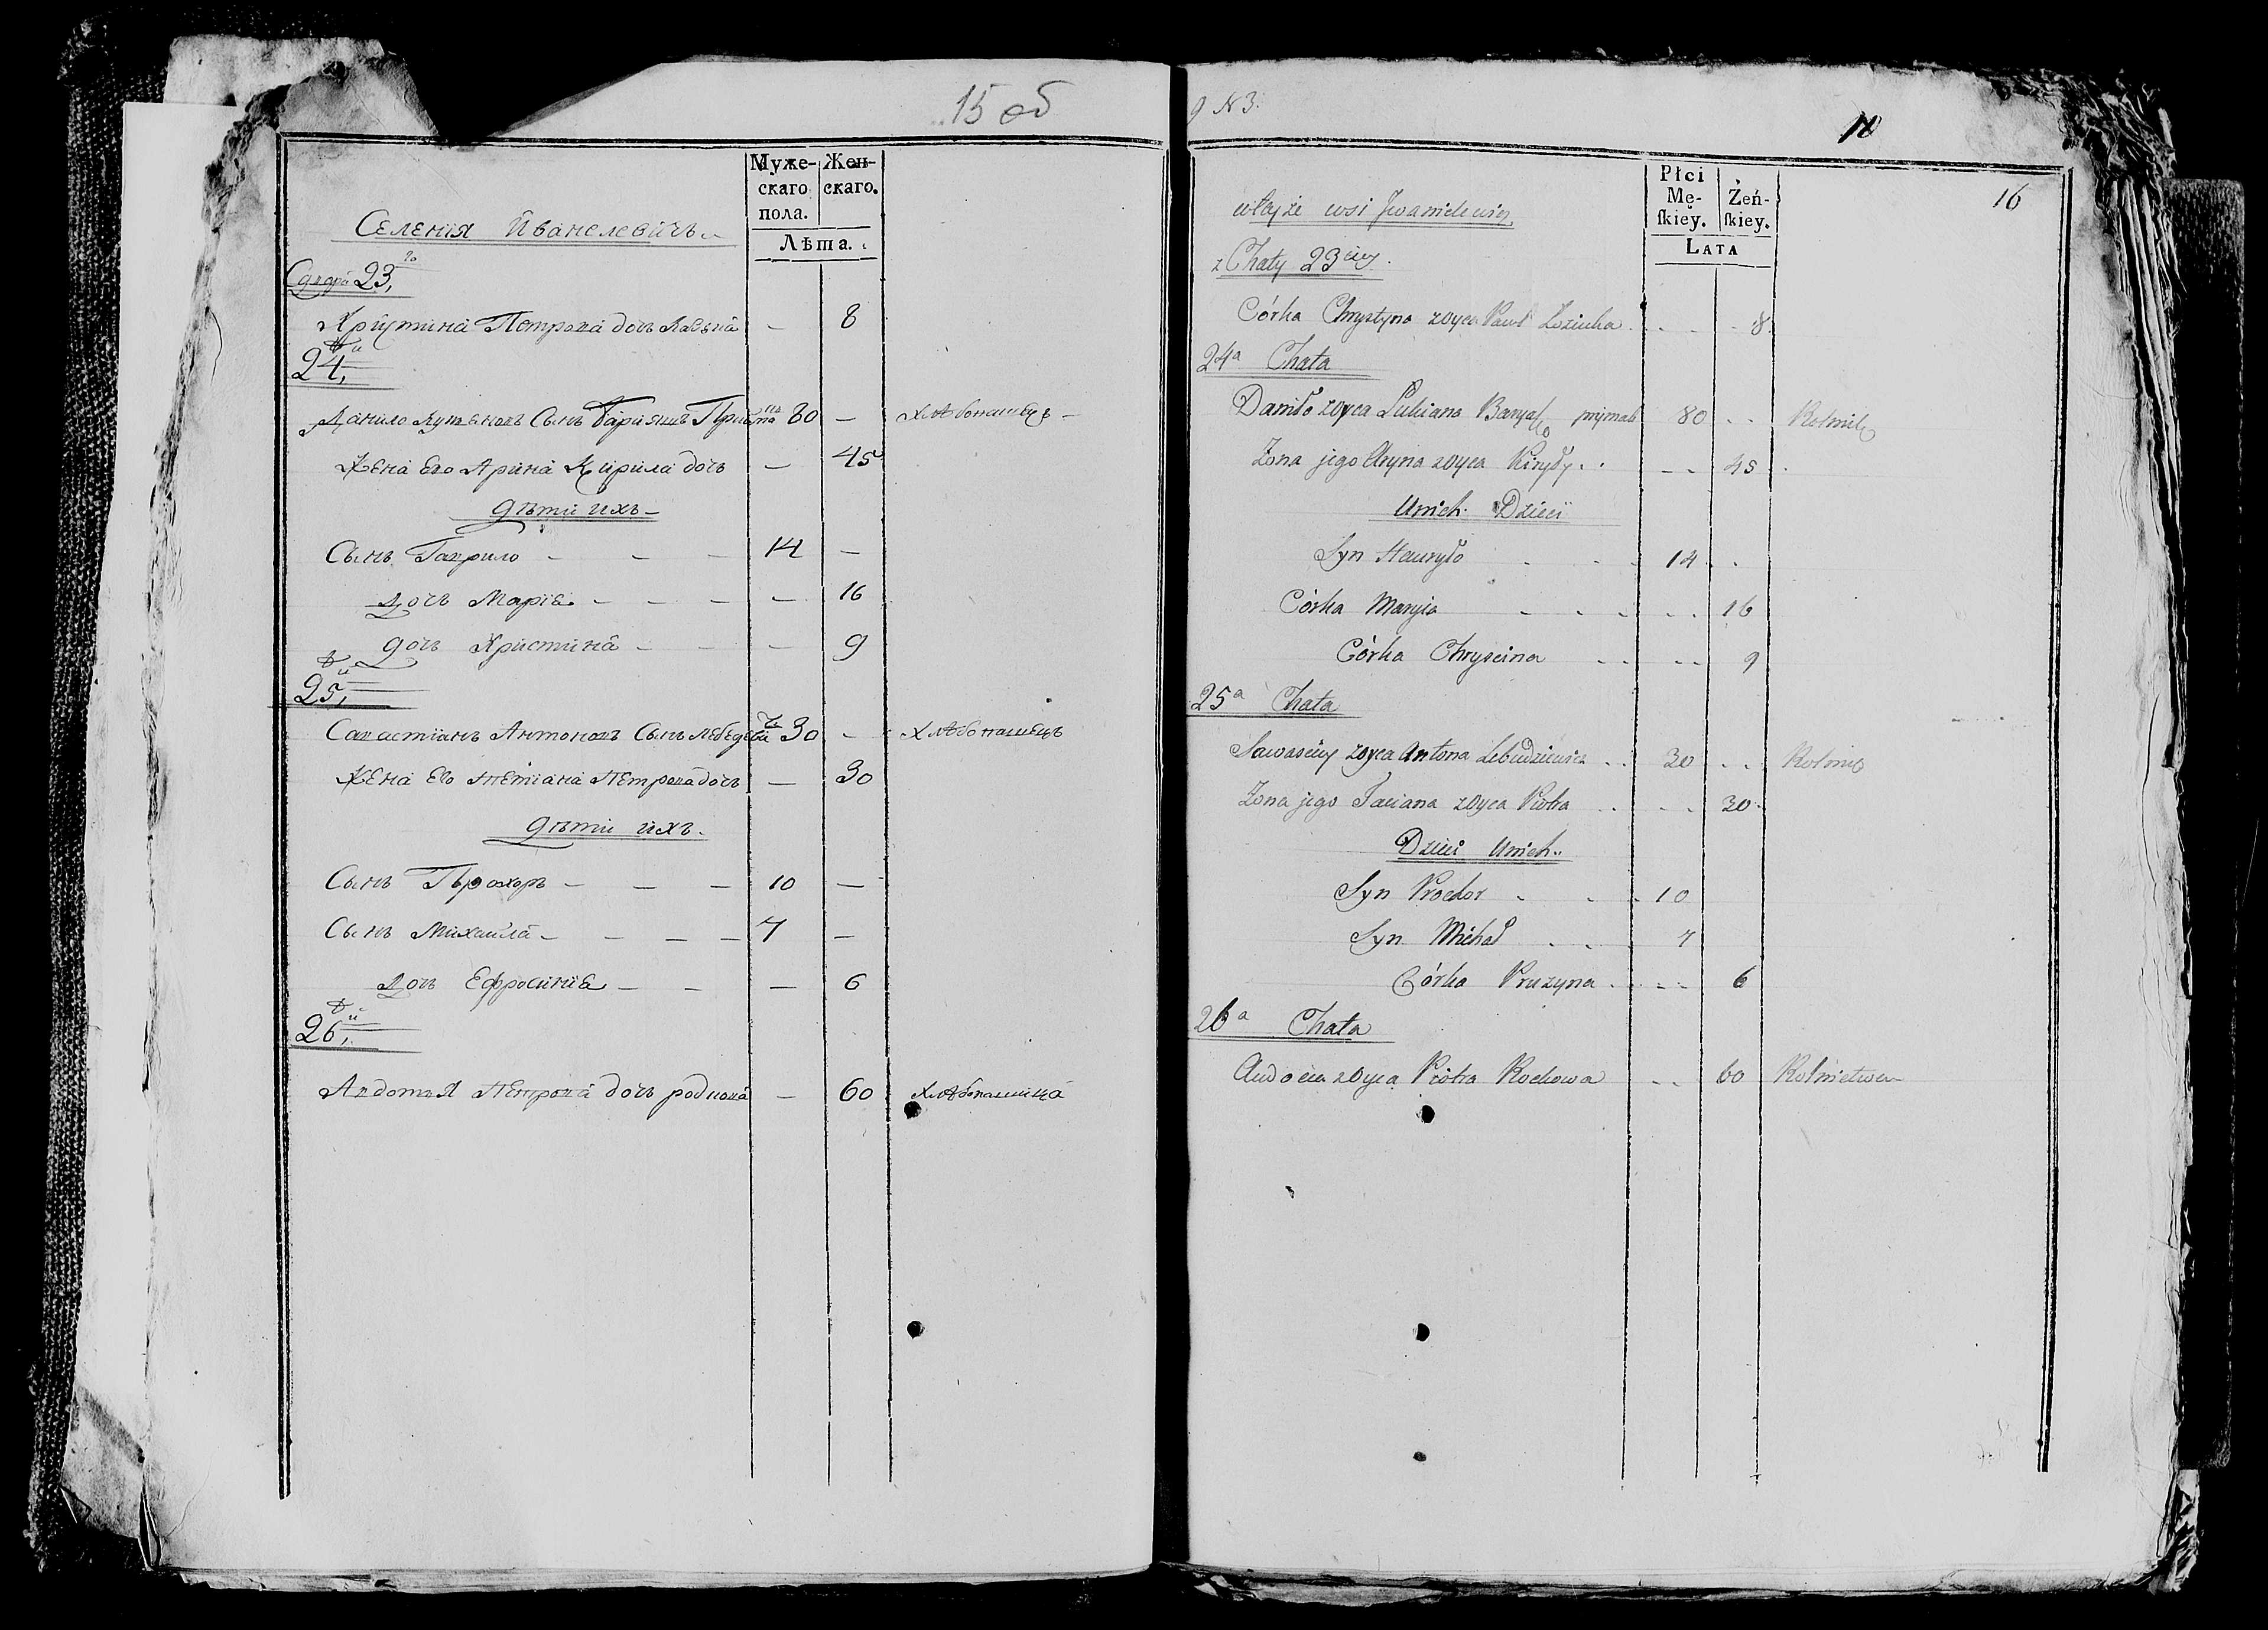 15 об
Муже-
скаго
пола.
Жен-
скаго.
Лѣта.
Селенія Иванелевичъ
23
Христина Петрова дочь 8
24,
Данило Сынъ 80 — хлѣбопашецъ —
Жена Его Арина Кирила дочь — 45
дѣти ихъ —
Сынъ Гаврило — — — 14 —
дочь Марія — — — — 16
дочь Христина — — — 9
25,
Савастіанъ Антоновъ Сынъ 30 — хлѣбопашецъ
Жена Его Тетіана Петрова дочь — 30
дѣти ихъ.
Сынъ Прохоръ — — — 10 —
Сынъ Михайла — — — — 7 —
дочь Ефросинія — — — 6
26,
Авдотья Петрова дочь — 60 хлѣбопашица
9 N 3.
10
16
Płci
Mę-
ſkiey.
Żeń-
ſkiey.
LATA
wsi Iwanielewicz
z Chaty 23ciey.
Córka Chrystyna zoyca 8
24a Chata
Daniło zoyca Łukiana 80 Rolnik
Zona jego Aryna zoyca Kiryły 45
Unich Dzieci
Syn Hauryło 14
Córka Maryia 16
Córka Chryscina 9
25a Chata
zoyca Antona Lebiedziewicz 30 Rolnik
Zona jego Taciana zoyca Piotra 30
Dzieci Unich
Syn Prochor 10
Syn Michał 7
Córka Pruzyna 6
26a Chata
Audocia zoyca Piotra 60